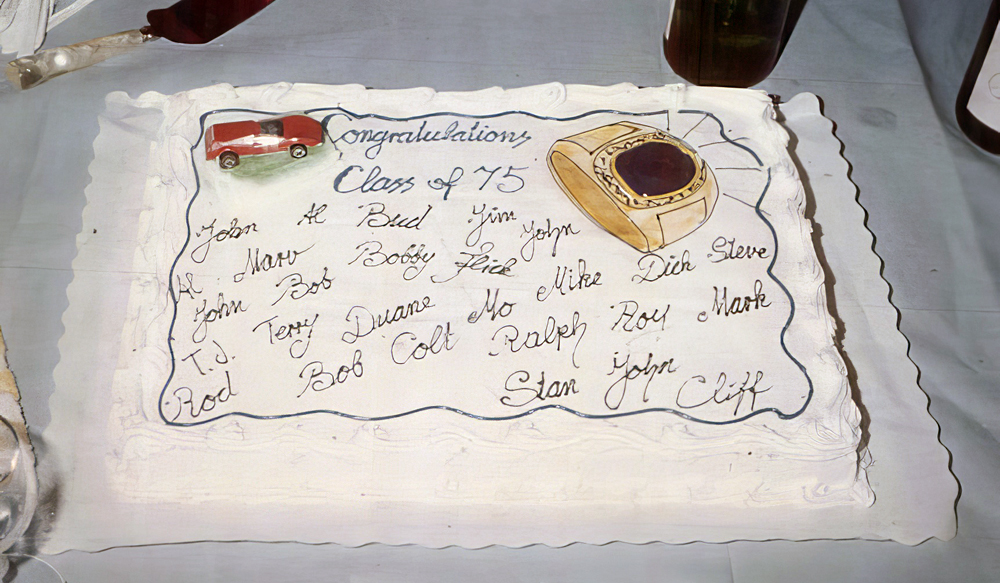 Congratulations
Class of 75
John Al Bud Jim John
Al Marv Bobby Flick Mike Dick Steve
John Bob
T.J. Terry Duane Mo Ralph Roy Mark
Rod Bob Colt Stan John Cliff